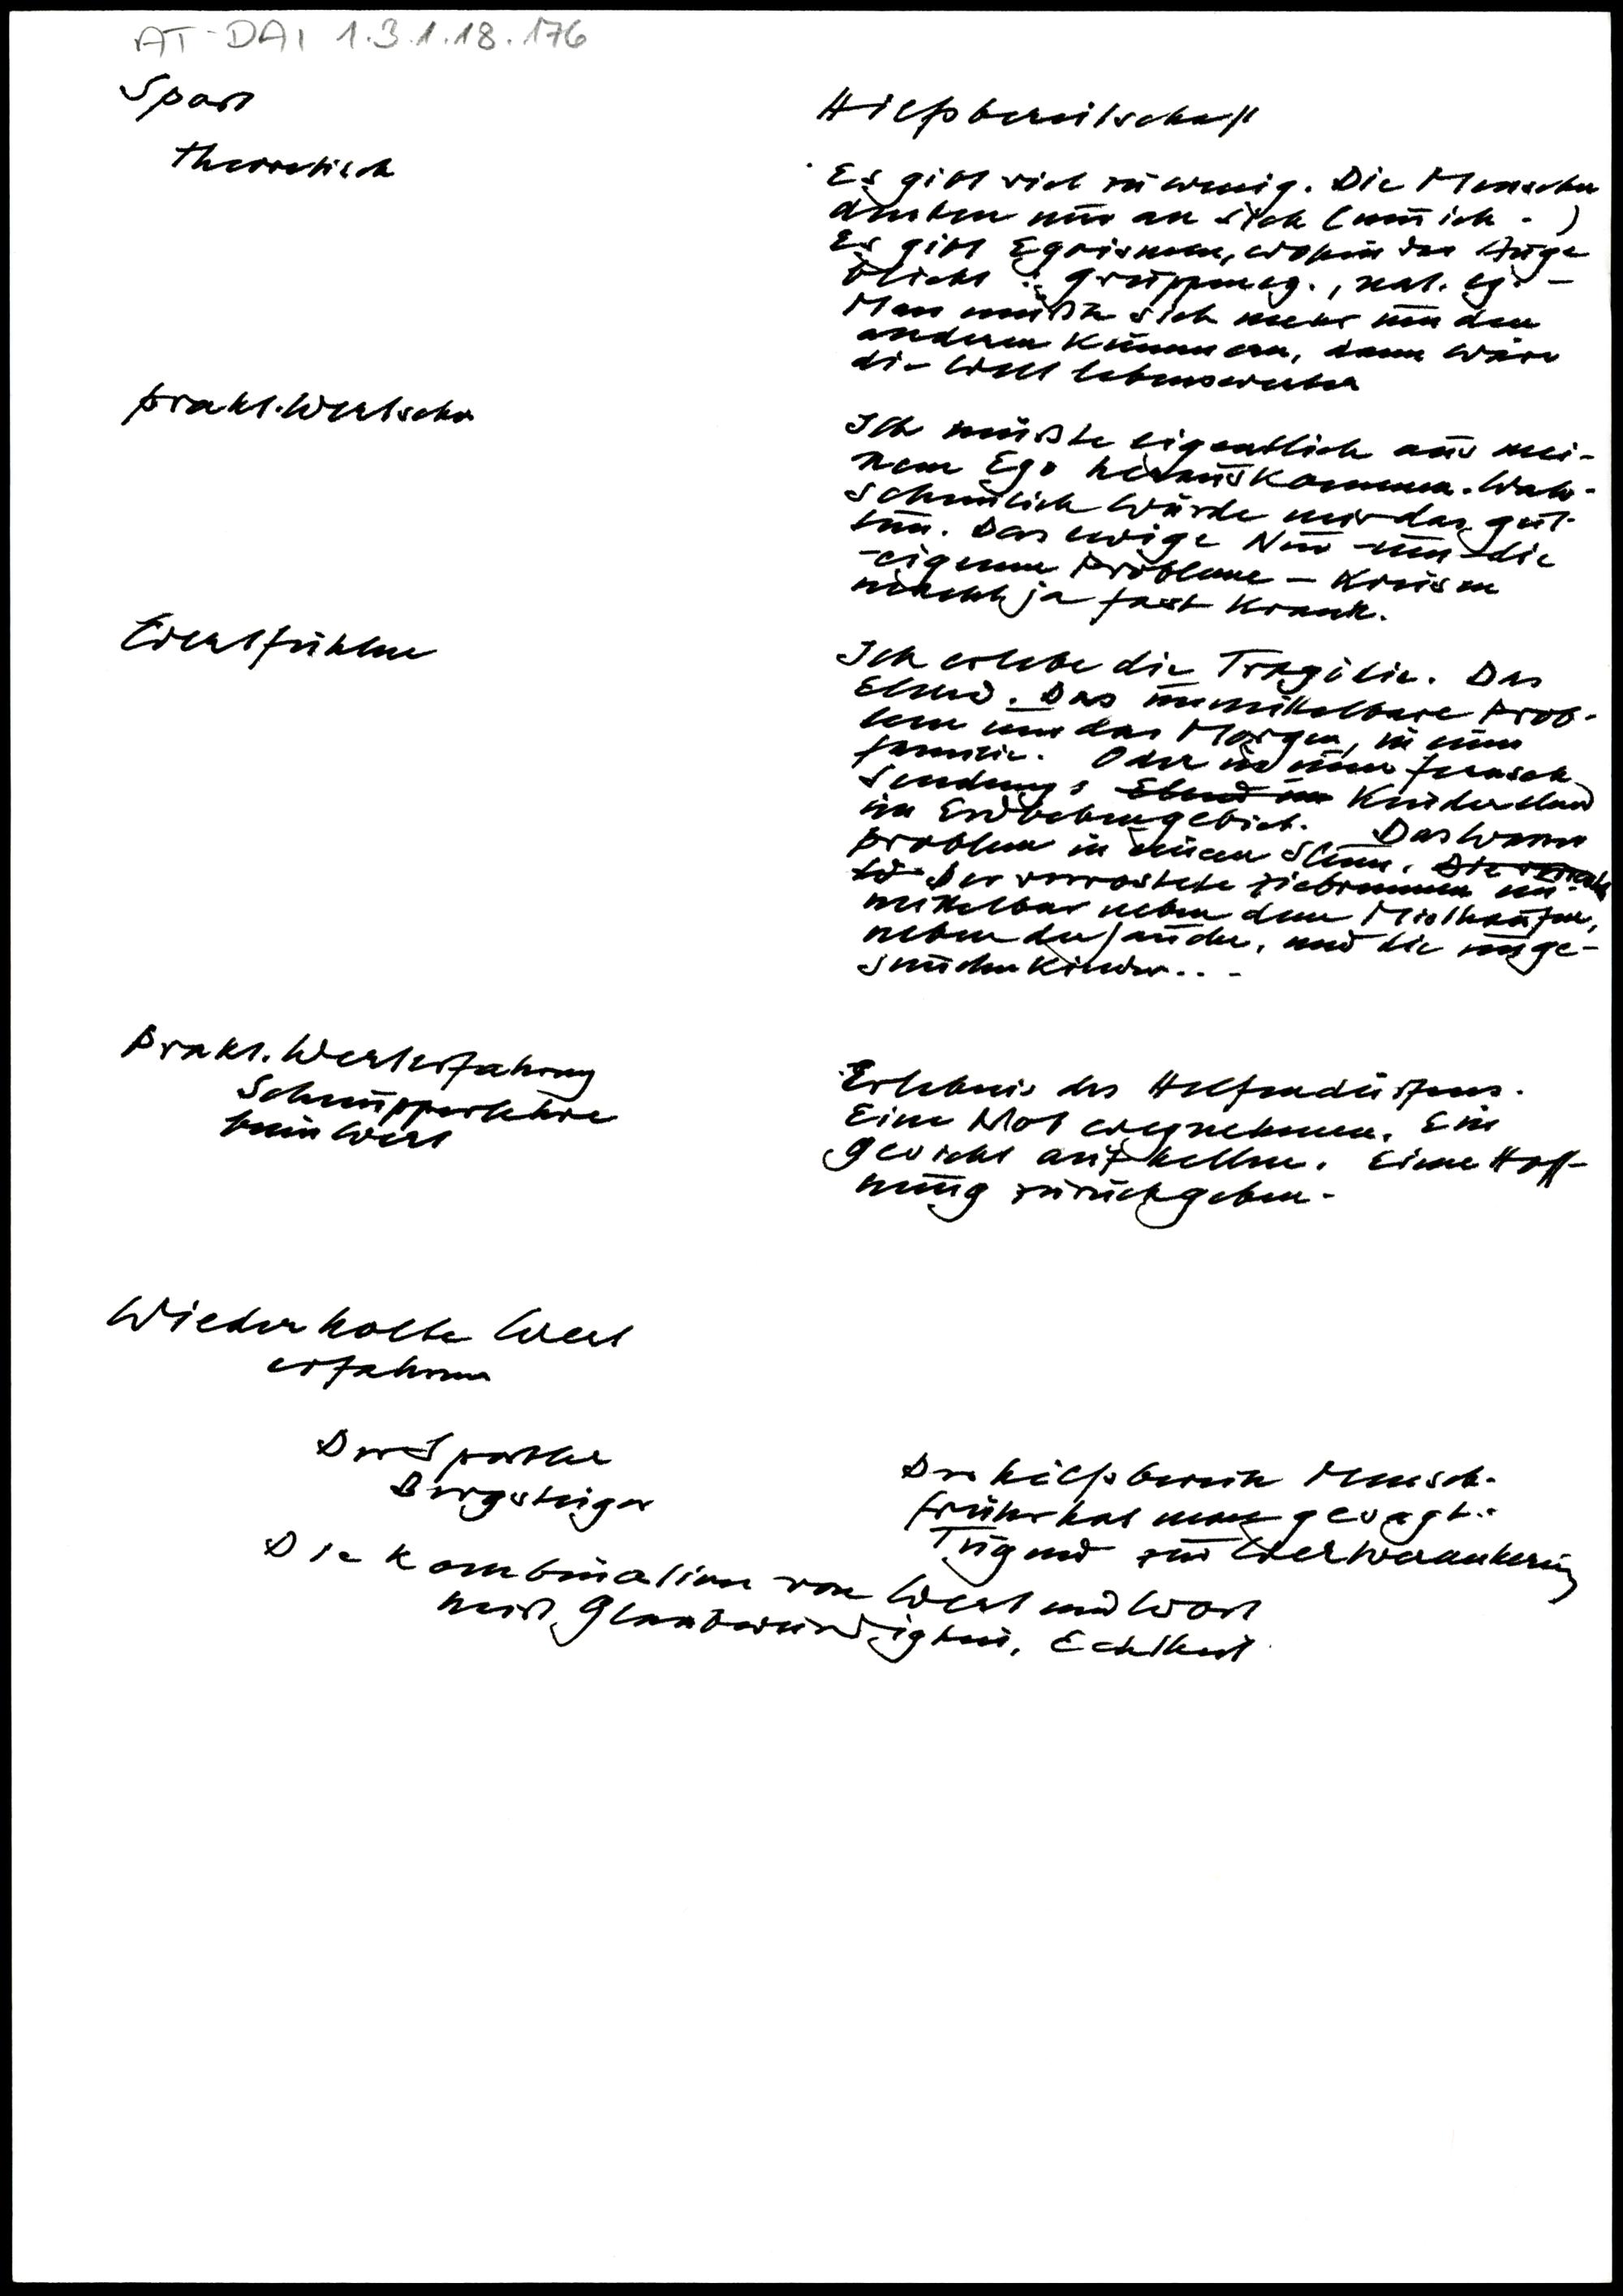 AT-DAI 1.3.1.18.176
Sport
theoretisch
Hilfsbereitschaft
Es gibt viel zu wenig. Die Menschen
denken nur an sich (nur ich.)
Es gibt Egoismen, wohin das Auge
blickt: Gruppeneg., nat. eg. -
Man müßte sich mehr um den
anderen kümmern, dann wäre
die Welt lebenswerter
prakt. Wertsehen
Ich müßte eigentlich aus mei-
nem Ego herauskommen. Wahr-
scheinlich würde mir das gut
tun. Das ewige Nur-um-die
-eigenen Probleme-Kreisen
macht ja fast krank.
Wertfühlen
Ich erlebe die Tragödie. Das
Elend. Das unmittelbare Prob-
lem um das Morgen, in einer
Familie. Oder in einer Fernseh
sendung: Elend im Kinderelend
im Erdbebengebiet. Das Wasser
problem in einem Slum. Die
Der verrostete Ziehbrunnen un
mittelbar neben dem Misthaufen,
neben der Jauche, und die unge-
sunden Kinder...
Prakt. Werterfahrung
Schnupperlehre
beim Wert
Erlebnis des Helfendürfens.
Eine Not wegnehmen. Ein
Gesicht aufhellen. Eine Hoff-
nung zurückgeben.
Wiederholte Wert
erfahrung
Der Sportler
Bergsteiger
Der hilfsbereite Mensch.
Früher hat man gesagt:
Tugend zur Wertverankerung
Die Kombination von Wert und Wort
heißt Glaubwürdigkeit, Echtheit.